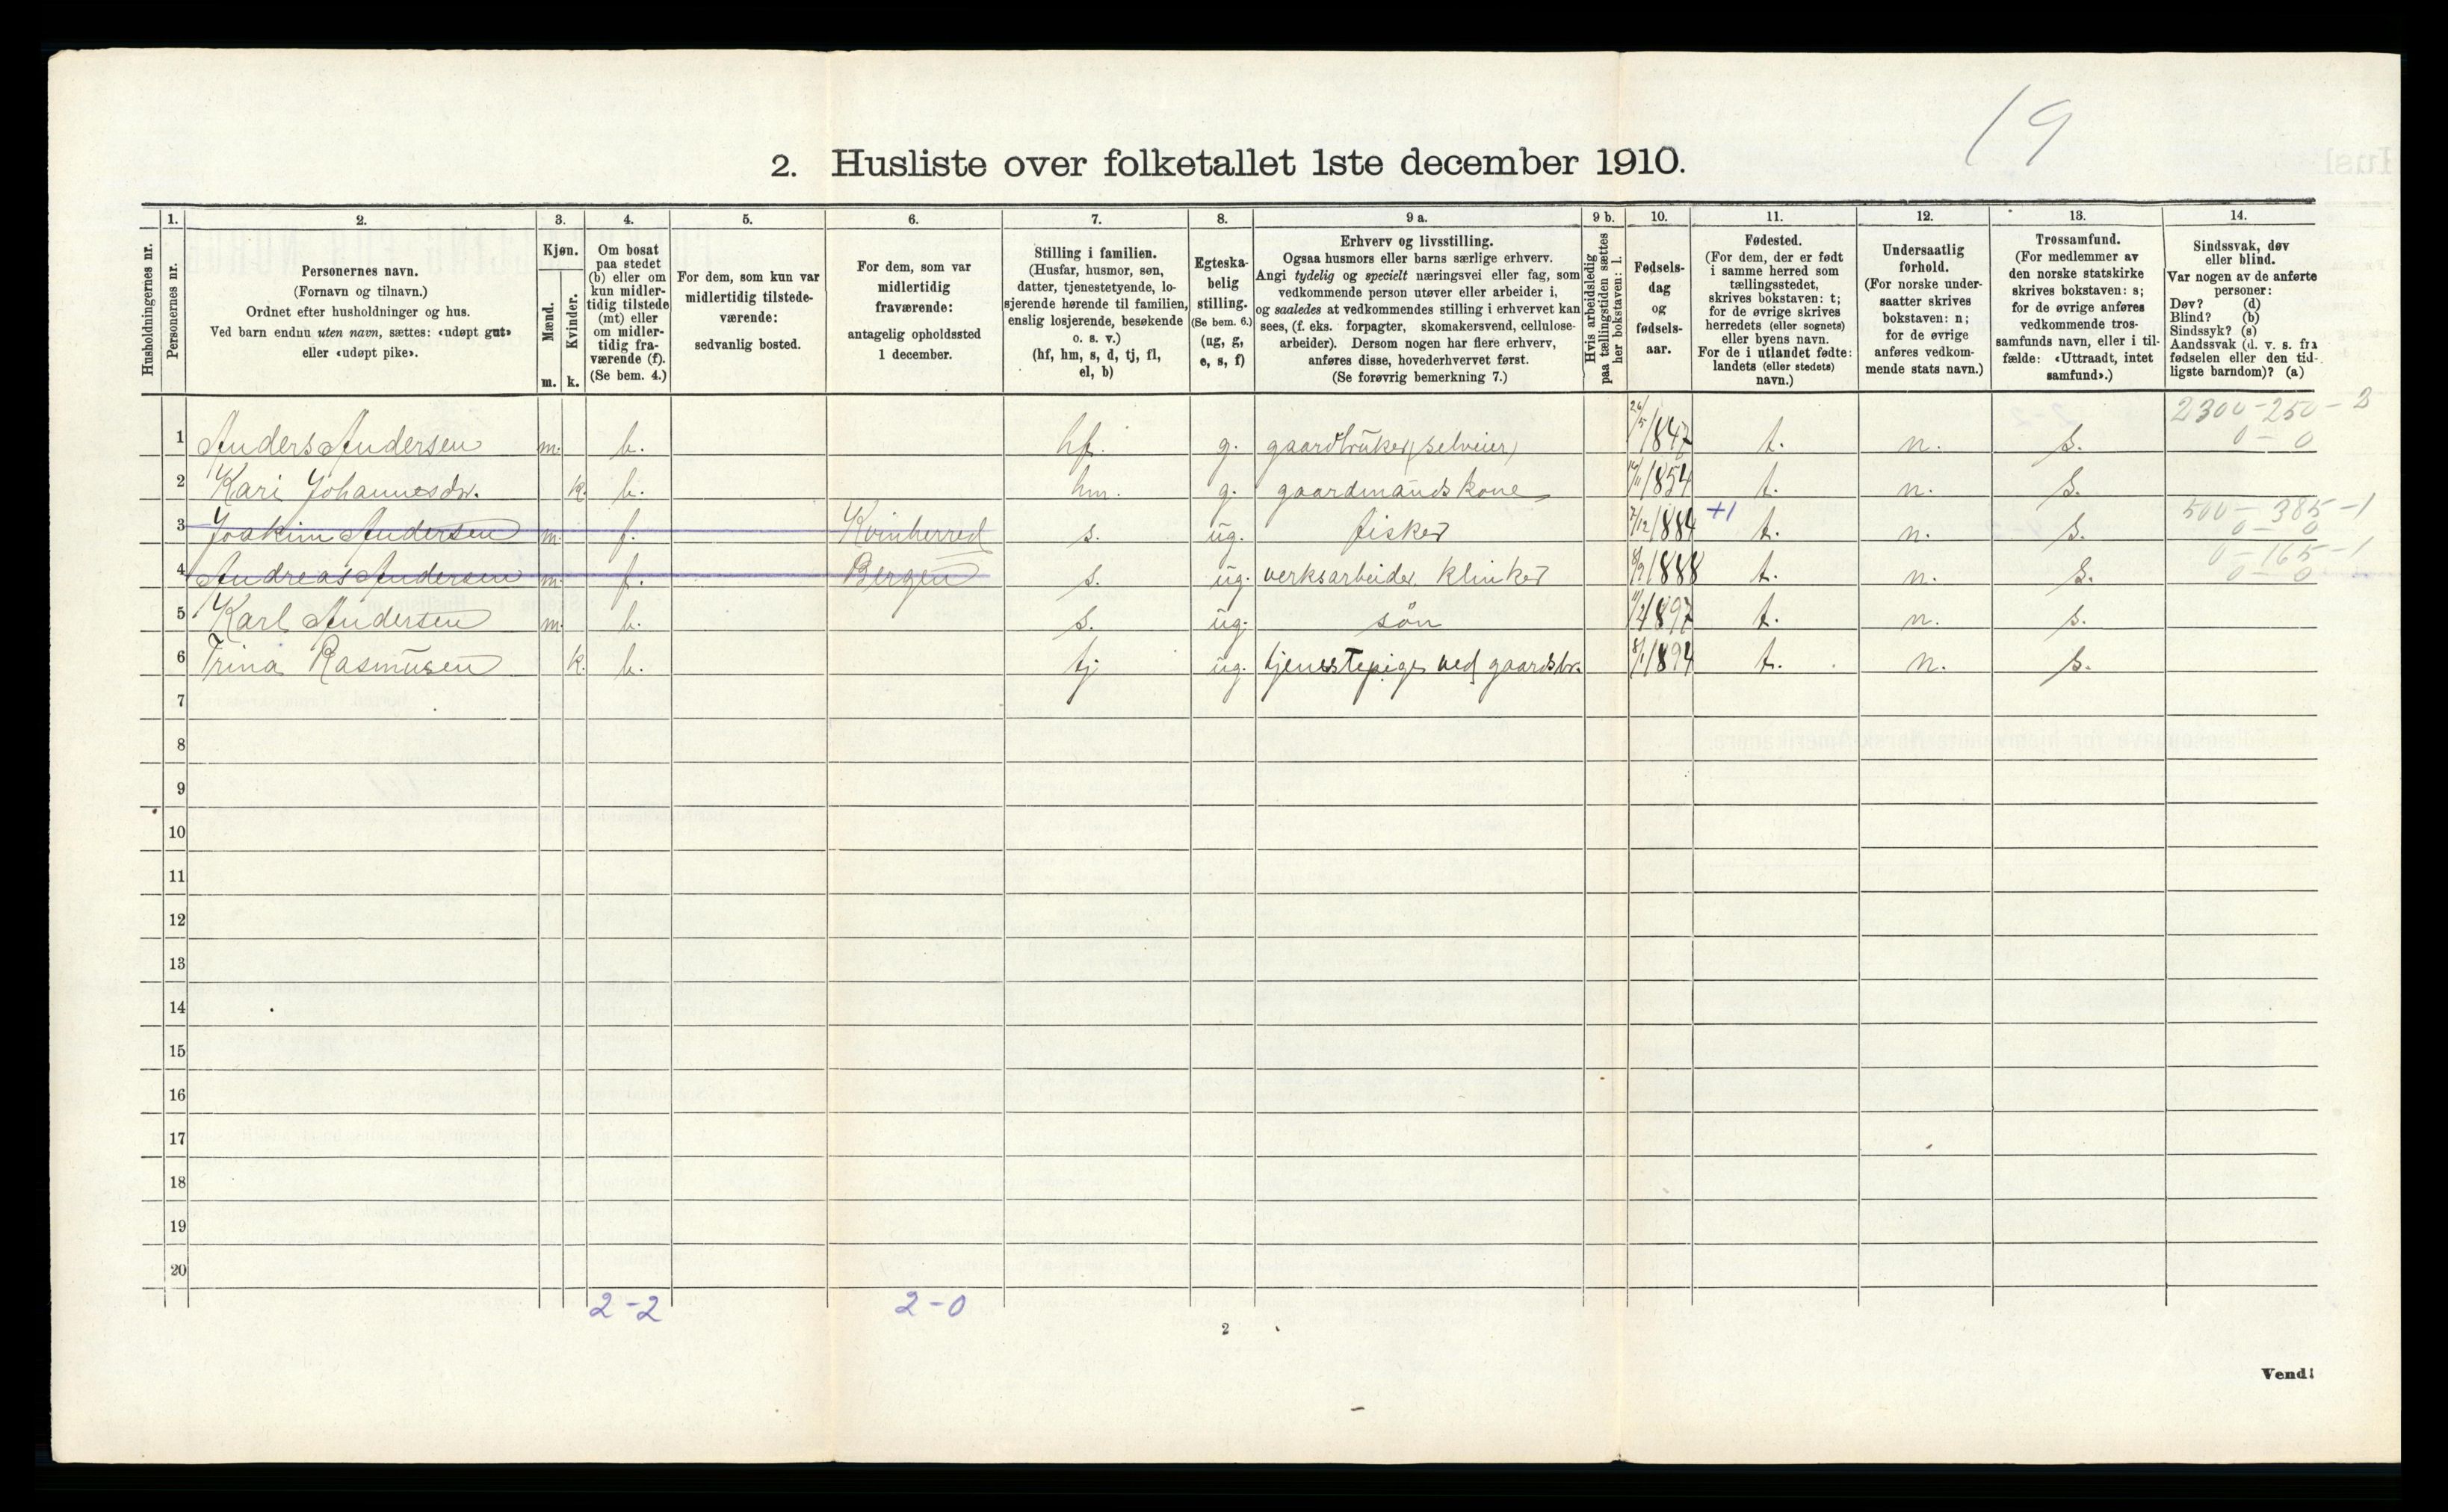 19
2. Husliste over folketallet 1ste december 1910.
Husholdningernes nr.
1. Personernes nr.
2. Personernes navn. (Fornavn og tilnavn.) Ordnet efter husholdninger og hus. Ved barn endnu uten navn, sættes: «udøpt gut» eller «udøpt pike».
3. Kjøn. Mænd. m. Kvinder. k.
4. Om bosat paa stedet (b) eller om kun midlertidig tilstede (mt) eller om midlertidig fraværende (f). (Se bem. 4.)
5. For dem, som kun var midlertidig tilstedeværende: sedvanlig bosted.
6. For dem, som var midlertidig fraværende: antagelig opholdssted 1 december.
7. Stilling i familien. (Husfar, husmor, søn, datter, tjenestetyende, losjerende hørende til familien, enslig losjerende, besøkende o. s. v.) (hf, hm, s, d, tj, fl, el, b)
8. Egteskabelig stilling. (Se bem. 6.) (ug, g, e, s, f)
9 a. Erhverv og livsstilling. Ogsaa husmors eller barns særlige erhverv. Angi tydelig og specielt næringsvei eller fag, som vedkommende person utøver eller arbeider i, og saaledes at vedkommendes stilling i erhvervet kan sees, (f. eks. forpagter, skomakersvend, cellulosearbeider). Dersom nogen har flere erhverv, anføres disse, hovederhvervet først. (Se forøvrig bemerkning 7.)
9 b. Hvis arbeidsledig paa tællingstiden sættes her bokstaven: l.
10. Fødselsdag og fødselsaar.
11. Fødested. (For dem, der er født i samme herred som tællingsstedet, skrives bokstaven: t; for de øvrige skrives herredets (eller sognets) eller byens navn. For de i utlandet fødte: landets (eller stedets) navn.)
12. Undersaatlig forhold. (For norske undersaatter skrives bokstaven: n; for de øvrige anføres vedkommende stats navn.)
13. Trossamfund. (For medlemmer av den norske statskirke skrives bokstaven: s; for de øvrige anføres vedkommende trossamfunds navn, eller i tilfælde: «Uttraadt, intet samfund».)
14. Sindssvak, døv eller blind. Var nogen av de anførte personer: Døv? (d) Blind? (b) Sindssyk? (s) Aandssvak (d. v. s. fra fødselen eller den tidligste barndom)? (a)
2300-250-
0-0
1 Anders Andersen m. b. hf. g. gaardbruker (selveier) 26/5 1847 t. n. s.
2 Kari Johannesdr. k. b. hm. g. gaardmands kone 1854 t. n. s.
500-385-1
0-0
3 Joakim Andersen m. f. Kvinherred s. ug. fisker 7/12 1884 +1 t. n. s.
0-165-1
0-0
4 Andreas Andersen m. f. Bergen s. ug. verksarbeider klinker 1888 t. n. s.
5 Karl Andersen m. b. s. ug. søn 1897 t. n. s.
6 Trina Rasmusen k. b. tj ug. tjenestepige ved gaardsbr. 8/1 1894 t. n. s.
7
8
9
10
11
12
13
14
15
16
17
18
19
20
2-2 2-0
2
Vend!